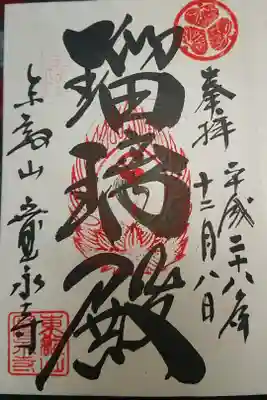 奉拝
平成二十八年
十二月八日
瑠璃殿
東叡山 寛永寺